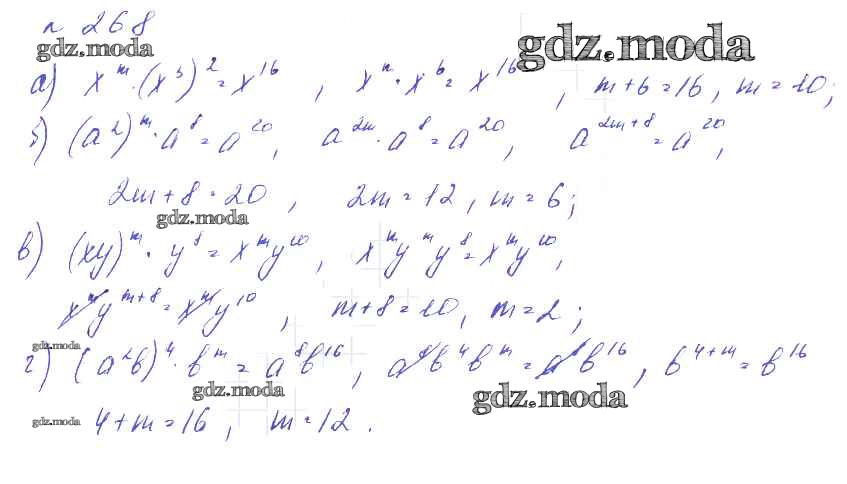 n 268
gdz.moda gdz.moda
а) x^m · (x^3)^2 = x^16, x^n · x^6 = x^16, m+6=16, m=10;
б) (a^2)^m · a^8 = a^20, a^2m · a^8 = a^20, a^2m+8 = a^20,
2m+8=20, 2m=12, m=6;
gdz.moda
в) (xy)^m · y^8 = x^m y^10, x^m y^m y^8 = x^m y^10,
x^m y^m+8 = x^m y^10, m+8=10, m=2;
gdz.moda
г) (a^2b)^4 · b^m = a^8b^16, a^8b^4b^m = a^8b^16, b^4+m = b^16
gdz.moda gdz.moda
gdz.moda 4+m=16, m=12.